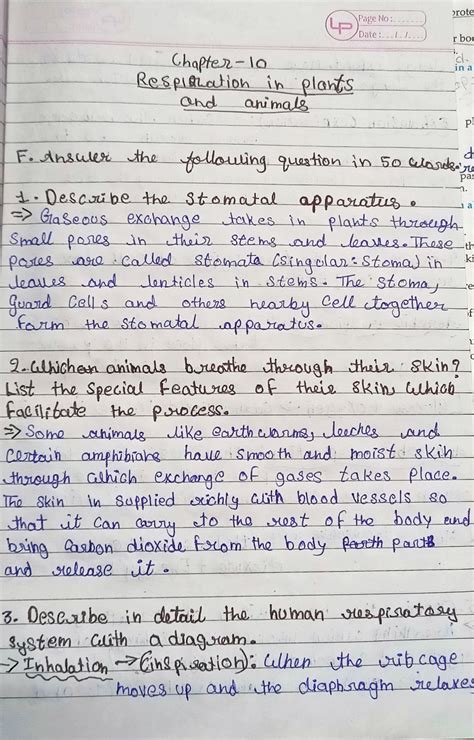 LP Page No:
Date: / /
Chapter-10
Respiration in plants
and animals
F. Answer the following question in 50 words.
1. Describe the stomatal apparatus.
⇒ Gaseous exchange takes in plants through
small pores in their stems and leaves. These
pores are called stomata (singular: stoma) in
leaves and lenticles in stems. The stoma,
guard cells and others nearby cell together
form the stomatal apparatus.
2. Which animals breathe through their skin?
List the special features of their skin which
facilitate the process.
⇒ Some animals like earthworms, leeches and
certain amphibians have smooth and moist skin
through which exchange of gases takes place.
The skin in supplied richly with blood vessels so
that it can carry to the rest of the body and
bring carbon dioxide from the body parts
and release it.
3. Describe in detail the human respiratory
system with a diagram.
→ Inhalation → (inspiration): When the rib cage
moves up and the diaphragm relaxes